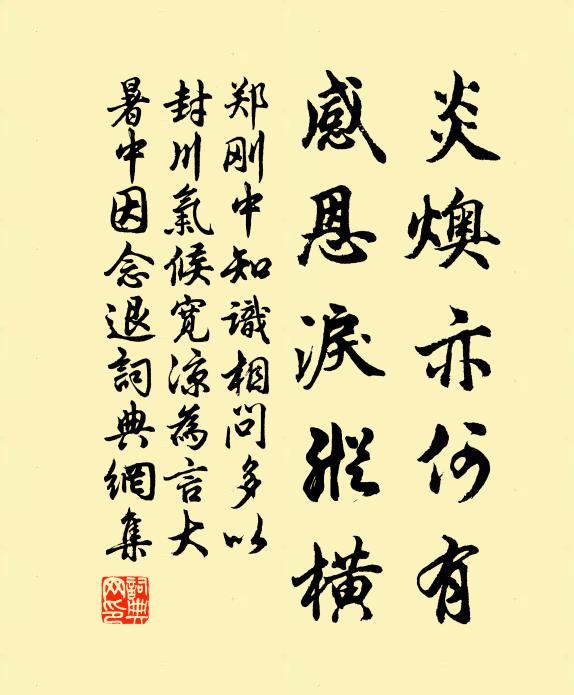 炎燠亦何有
感恩淚縱橫
郑刚中知識相問多以
封川氣候寬凉為言大
暑中因念退詞典網集
詞典网印